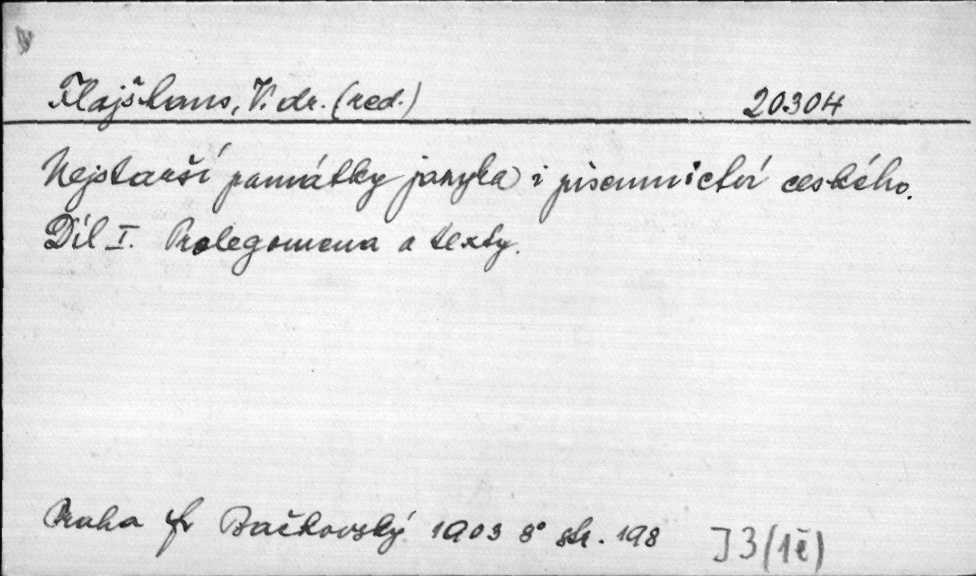 Flajšhans, V. dr. (red.) 20304
Nejstarší památky jazyka i písemnictví českého.
Díl I. Prolegomena a texty.
Praha Fr Bačkovský 1903 8° str. 198 J3(1č)